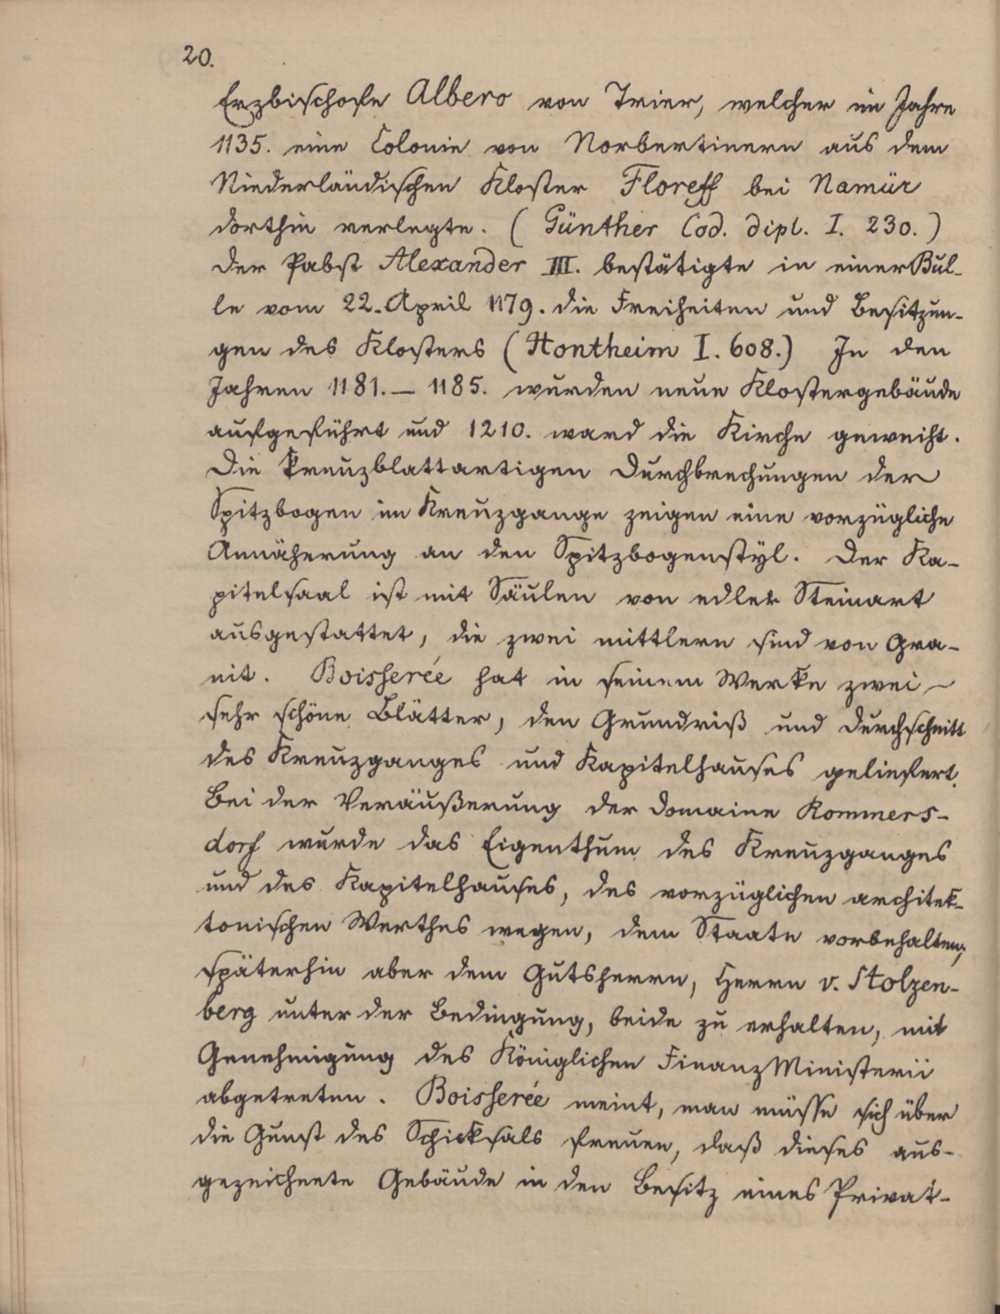 20.
Erzbischofe Albero von Trier, welcher im Jahre
1135. eine Colonie von Norbertinern aus dem
Niederländischen Kloster Floreff bei Namür
dorthin verlegte. (Günther Cod. dipl. I. 230.)
Der Pabst Alexander III. bestätigte in einer Bul-
le vom 22. April 1179. die Freiheiten und Besitzun-
gen des Klosters (Hontheim I. 608.) In den
Jahren 1181.— 1185. wurden neue Klostergebäude
aufgeführt und 1210. ward die Kirche geweiht.
Die kreuzblattartigen Durchbrechungen der
Spitzbogen im Kreuzgange zeigen eine vorzügliche
Annäherung an den Spitzbogenstÿl. Der Ka-
pitelsaal ist mit Säulen von edler Steinart
ausgestattet, die zwei mittlern sind von Gra-
nit. Boisserée hat in seinem Werke zwei
sehr schöne Blätter, den Grundriß und Durchschnitt
des Kreuzganges und Kapitelhauses geliefert.
Bei der Veräußerung der Domaine Rommers-
dorf wurde das Eigenthum des Kreuzganges
und des Kapitelhauses, des vorzüglichen architek-
tonischen Werthes wegen, dem Staate vorbehalten,
späterhin aber dem Gutsherrn, Herrn v. Stolzen-
berg unter der Bedingung, beide zu erhalten, mit
Genehmigung des Königlichen FinanzMinisterii
abgetreten. Boisserée meint, man müsse sich über
die Gunst des Schicksals freuen, daß dieses aus-
gezeichnete Gebäude in den Besitz eines Privat-